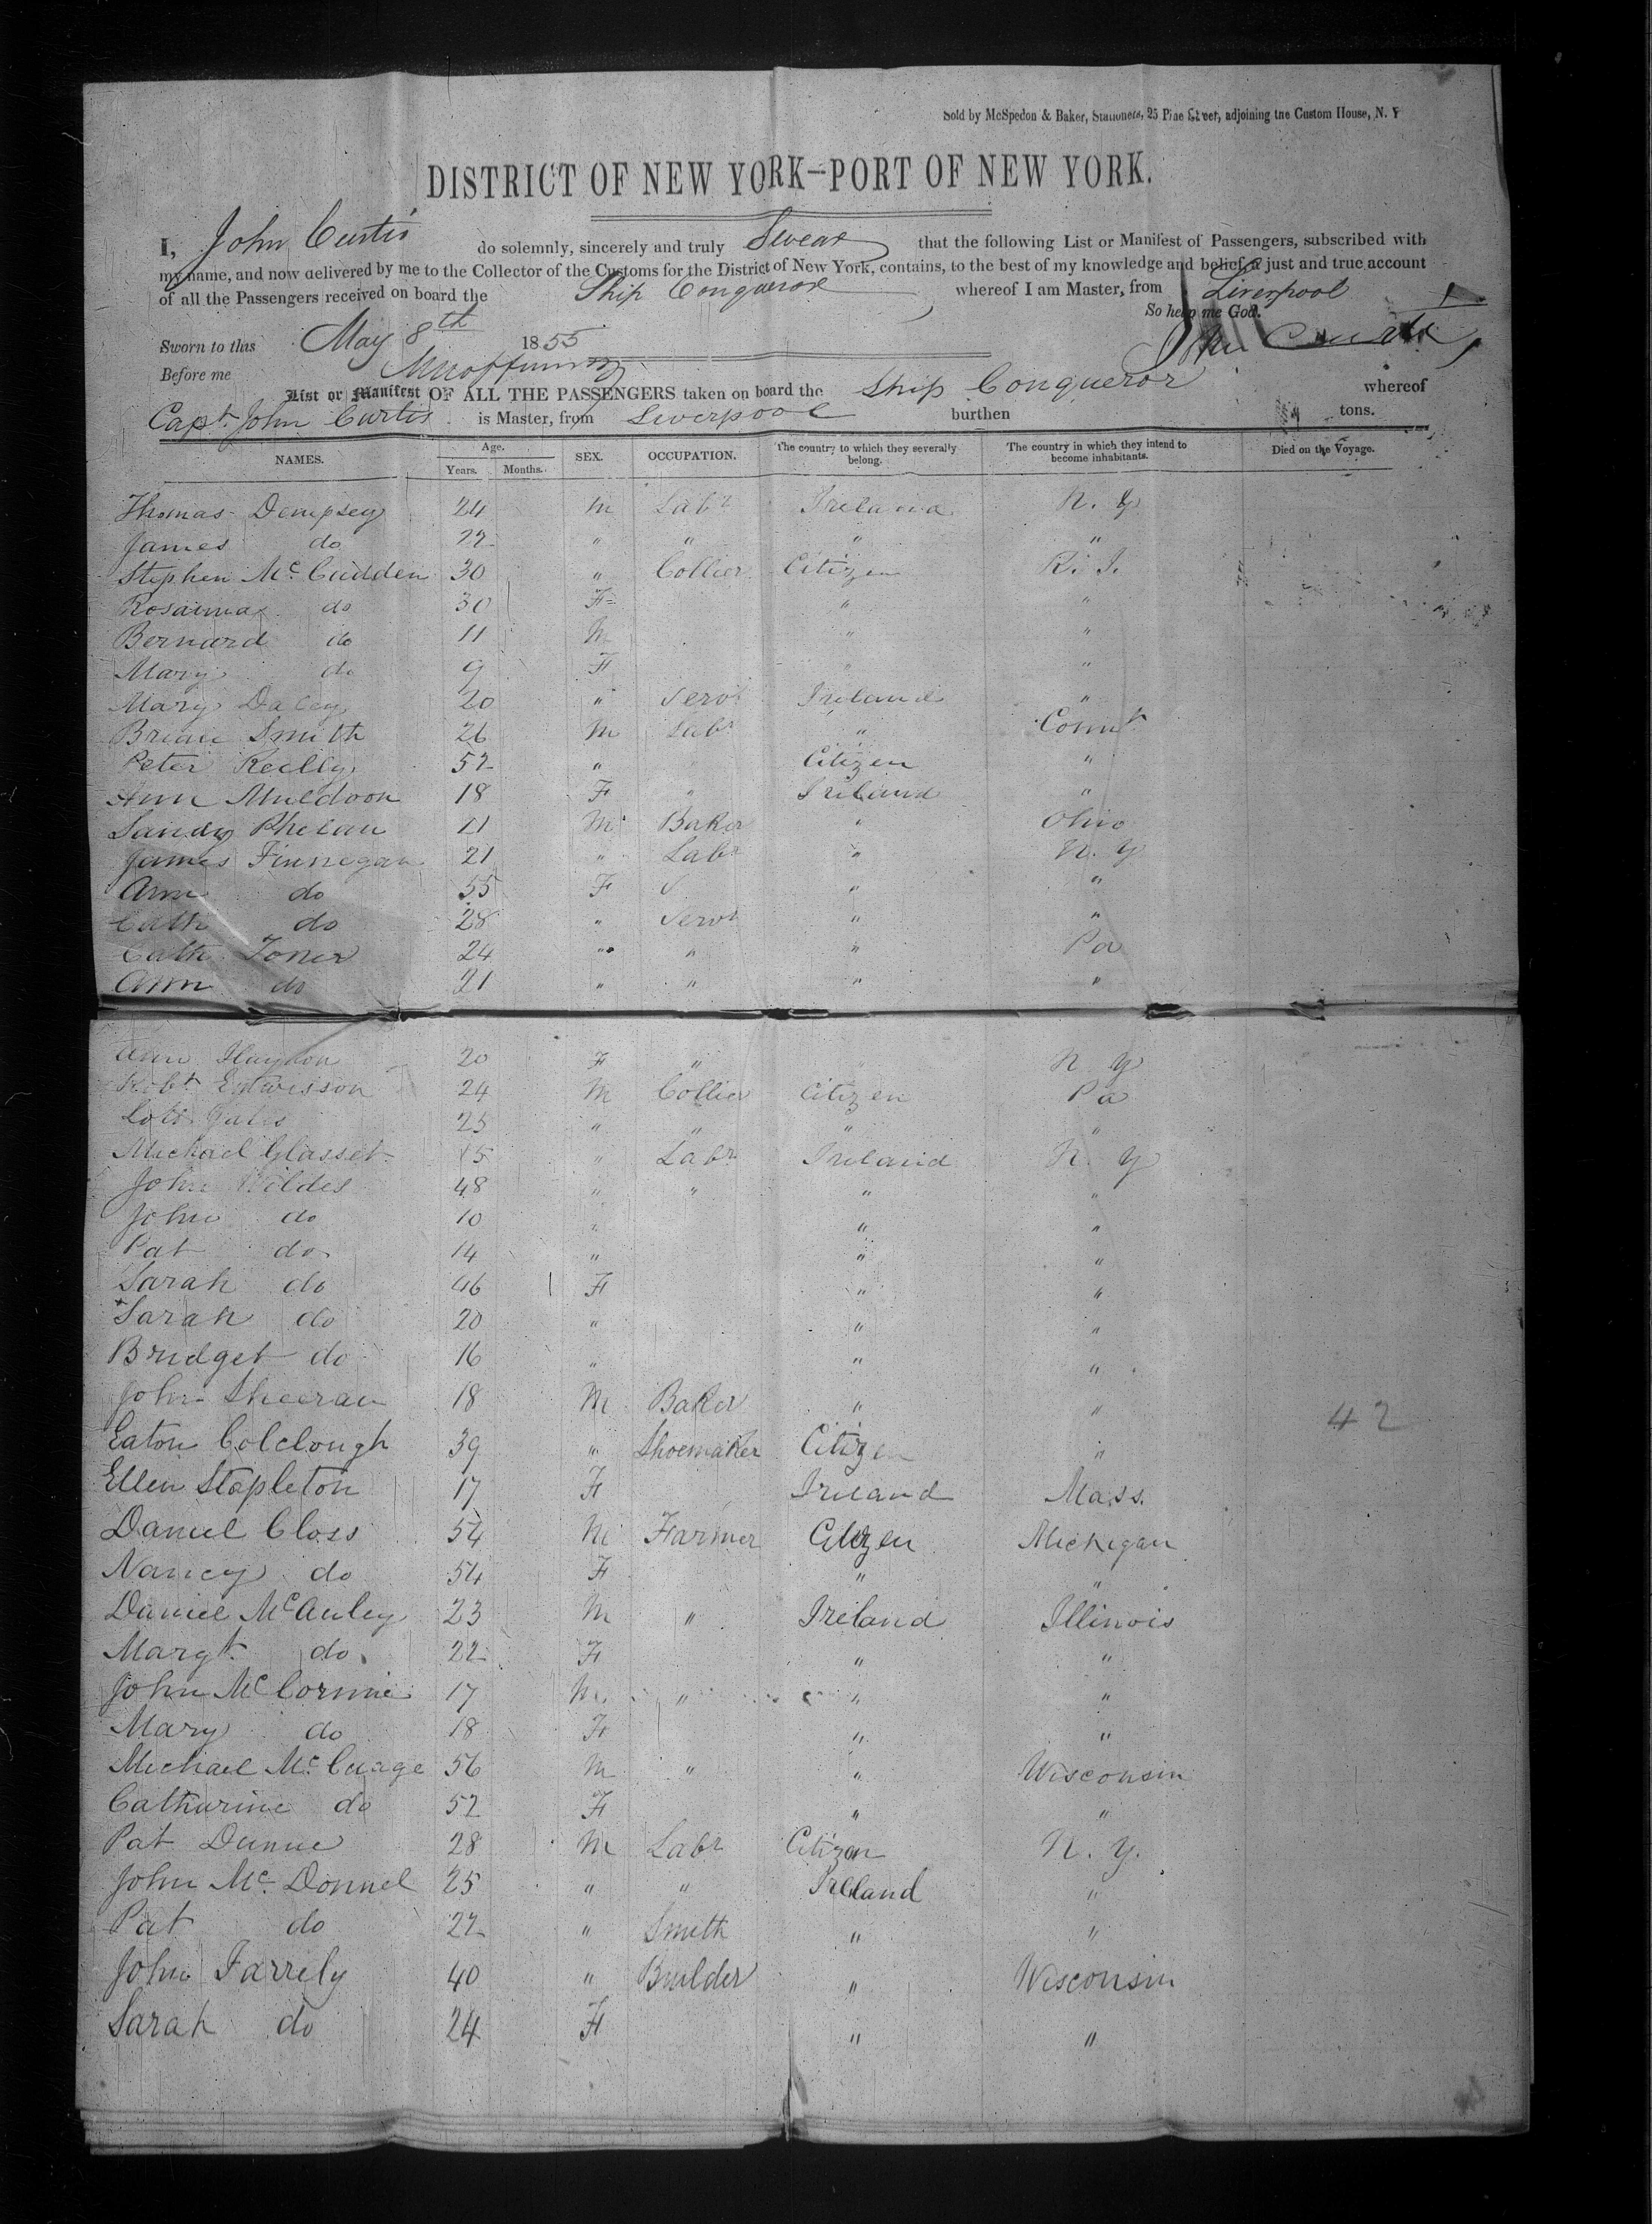 Sold by McSpedon & Baker, Stationers, 25 Pine Street, adjoining the Custom House, N. Y
DISTRICT OF NEW YORK—PORT OF NEW YORK.
I, John Curtis do solemnly, sincerely and truly Swear that the following List or Manifest of Passengers, subscribed with
my name, and now delivered by me to the Collector of the Customs for the District of New York, contains, to the best of my knowledge and belief, a just and true account
of all the Passengers received on board the Ship Conqueror whereof I am Master, from Liverpool
So help me God.
Sworn to this May 8th 1855 John Curtis
Before me
List or Manifest OF ALL THE PASSENGERS taken on board the Ship Conqueror whereof
Capt. John Curtis is Master, from Liverpool burthen tons.
NAMES. Age. Years. Months. SEX. OCCUPATION. The country to which they severally belong. The country in which they intend to become inhabitants. Died on the Voyage.
Thomas Dempsey 24 M Labr Ireland N. Y
James do 22 " " " "
Stephen Mc Cudden 30 " Collier Citizen R. I.
Rosanna do 30 F " "
Bernard do 11 M " "
Mary do 9 F " "
Mary Daley 20 " Servt Ireland "
Brian Smith 26 M Labr " Connt
Peter Reilly 52 " " Citizen "
Ann Muldoon 18 F " Ireland "
Sandy Phelan 21 M Baker " Ohio
James Finnegan 21 " Labr " N. Y
Ann do 55 F " "
Cath do 28 " Servt " "
Cath Toner 24 " " " Pa
Ann do 21 " " " "
Ann 20 F " N. Y
Robt 24 M Collier Citizen Pa
25 " " " "
Michael Glasset 15 " Labr Ireland N. Y
John Wildes 48 " " " "
John do 10 " " "
Pat do 14 " " "
Sarah do 46 F " "
Sarah do 20 " " "
Bridget do 16 " " "
John Sheeran 18 M Baker " "
42
Eaton Colclough 39 " Shoemaker Citizen "
Ellen Stapleton 17 F Ireland Mass.
Daniel Closs 54 M Farmer Citizen Michigan
Nancy do 54 F " "
Daniel McAuley 23 M " Ireland Illinois
Margt. do 22 F " "
John McCormic 17 M " " "
Mary do 18 F " "
Michael Mc Cuage 56 M " " Wisconsin
Catharine do 52 F " "
Pat Dunne 28 M Labr Citizen N. Y.
John Mc Donnel 25 " " Ireland "
Pat do 22 " Smith " "
John Farrely 40 " Builder " Wisconsin
Sarah do 24 F " "